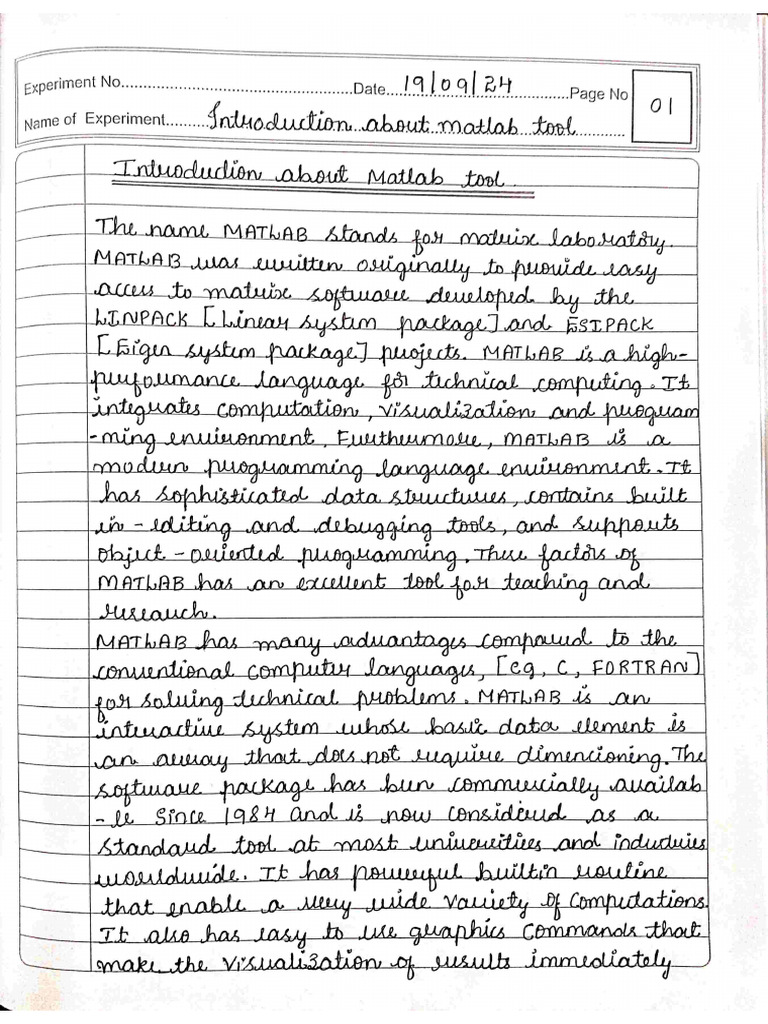 Experiment No.......................................................Date....19/09/24..............Page No
01
Name of Experiment.........Introduction about matlab tool............
Introduction about Matlab tool
The name MATLAB stands for matrix laboratory.
MATLAB was written originally to provide easy
access to matrix software developed by the
LINPACK [Linear system package] and ESIPACK
[Eigen system package] projects. MATLAB is a high-
performance language for technical computing. It
integrates computation, visualization and program
-ming environment. Furthermore, MATLAB is a
modern programming language environment. It
has sophisticated data structures, contains built
in - editing and debugging tools, and supports
object - oriented programming. These factors of
MATLAB has an excellent tool for teaching and
research.
MATLAB has many advantages compared to the
conventional computer languages, [eg, C, FORTRAN]
for solving technical problems. MATLAB is an
interactive system whose basic data element is
an array that does not require dimencioning. The
software package has been commercially availab
-le since 1984 and is now considered as a
standard tool at most universities and industries
worldwide. It has powerful builtin routine
that enable a very wide variety of computations.
It also has easy to use graphics commands that
make the visualization of results immediately